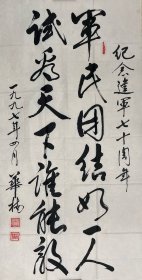 纪念建军七十周年
军民团结如一人
试看天下谁能敌
一九九七年四月 华楠